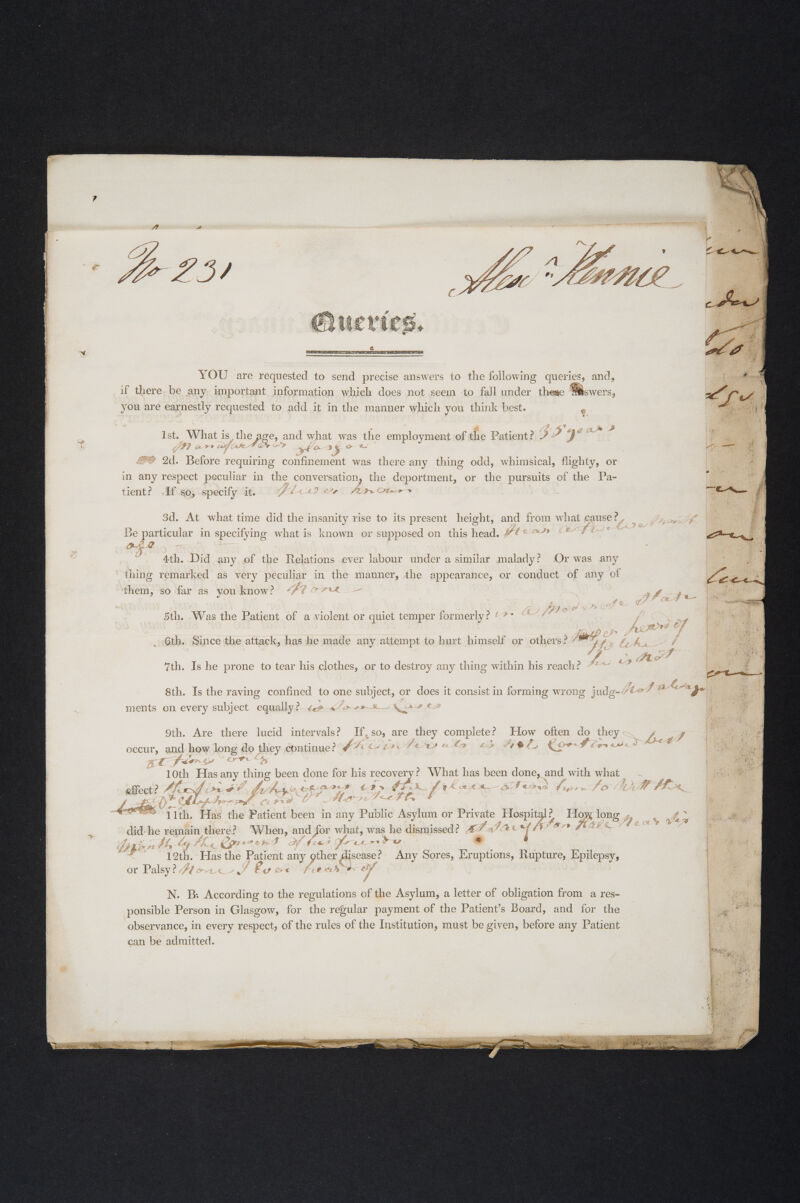 No 231
Alexr. Rennie
Queries.
YOU are requested to send precise answers to the following queries, and,
if there be any important information which does not seem to fall under these answers,
you are earnestly requested to add it in the manner which you think best.
1st. What is the age, and what was the employment of the Patient? 35 years
Manufacturer glasgow
2d. Before requiring confinement was there any thing odd, whimsical, flighty, or
in any respect peculiar in the conversation, the deportment, or the pursuits of the Pa-
tient? If so, specify it. Never known
3d. At what time did the insanity rise to its present height, and from what cause?
Be particular in specifying what is known or supposed on this head. Near a twelve Month
ago
4th. Did any of the Relations ever labour under a similar malady? Or was any
thing remarked as very peculiar in the manner, the appearance, or conduct of any of
them, so far as you know? None
5th. Was the Patient of a violent or quiet temper formerly? in a Moderate State
6th. Since the attack, has he made any attempt to hurt himself or others? never heard of
the like
7th. Is he prone to tear his clothes, or to destroy any thing within his reach? he is Not
8th. Is the raving confined to one subject, or does it consist in forming wrong judg- Not always
ments on every subject equally? is Some Cases
9th. Are there lucid intervals? If so, are they complete? How often do they
occur, and how long do they continue? the intervals is not Continued but
at times only
10th Has any thing been done for his recovery? What has been done, and with what
effect? the first physicians in the place atend him to Witt the
late Dr Cleghorn and Dr Monteith
11th. Has the Patient been in any Public Asylum or Private Hospital? How long
did he remain there? When, and for what, was he dismissed? At Hall Near Six
Months by the Consent of his friends
12th. Has the Patient any other disease? Any Sores, Eruptions, Rupture, Epilepsy,
or Palsy? None I Ever heard of
N. B. According to the regulations of the Asylum, a letter of obligation from a res-
ponsible Person in Glasgow, for the regular payment of the Patient's Board, and for the
observance, in every respect, of the rules of the Institution, must be given, before any Patient
can be admitted.